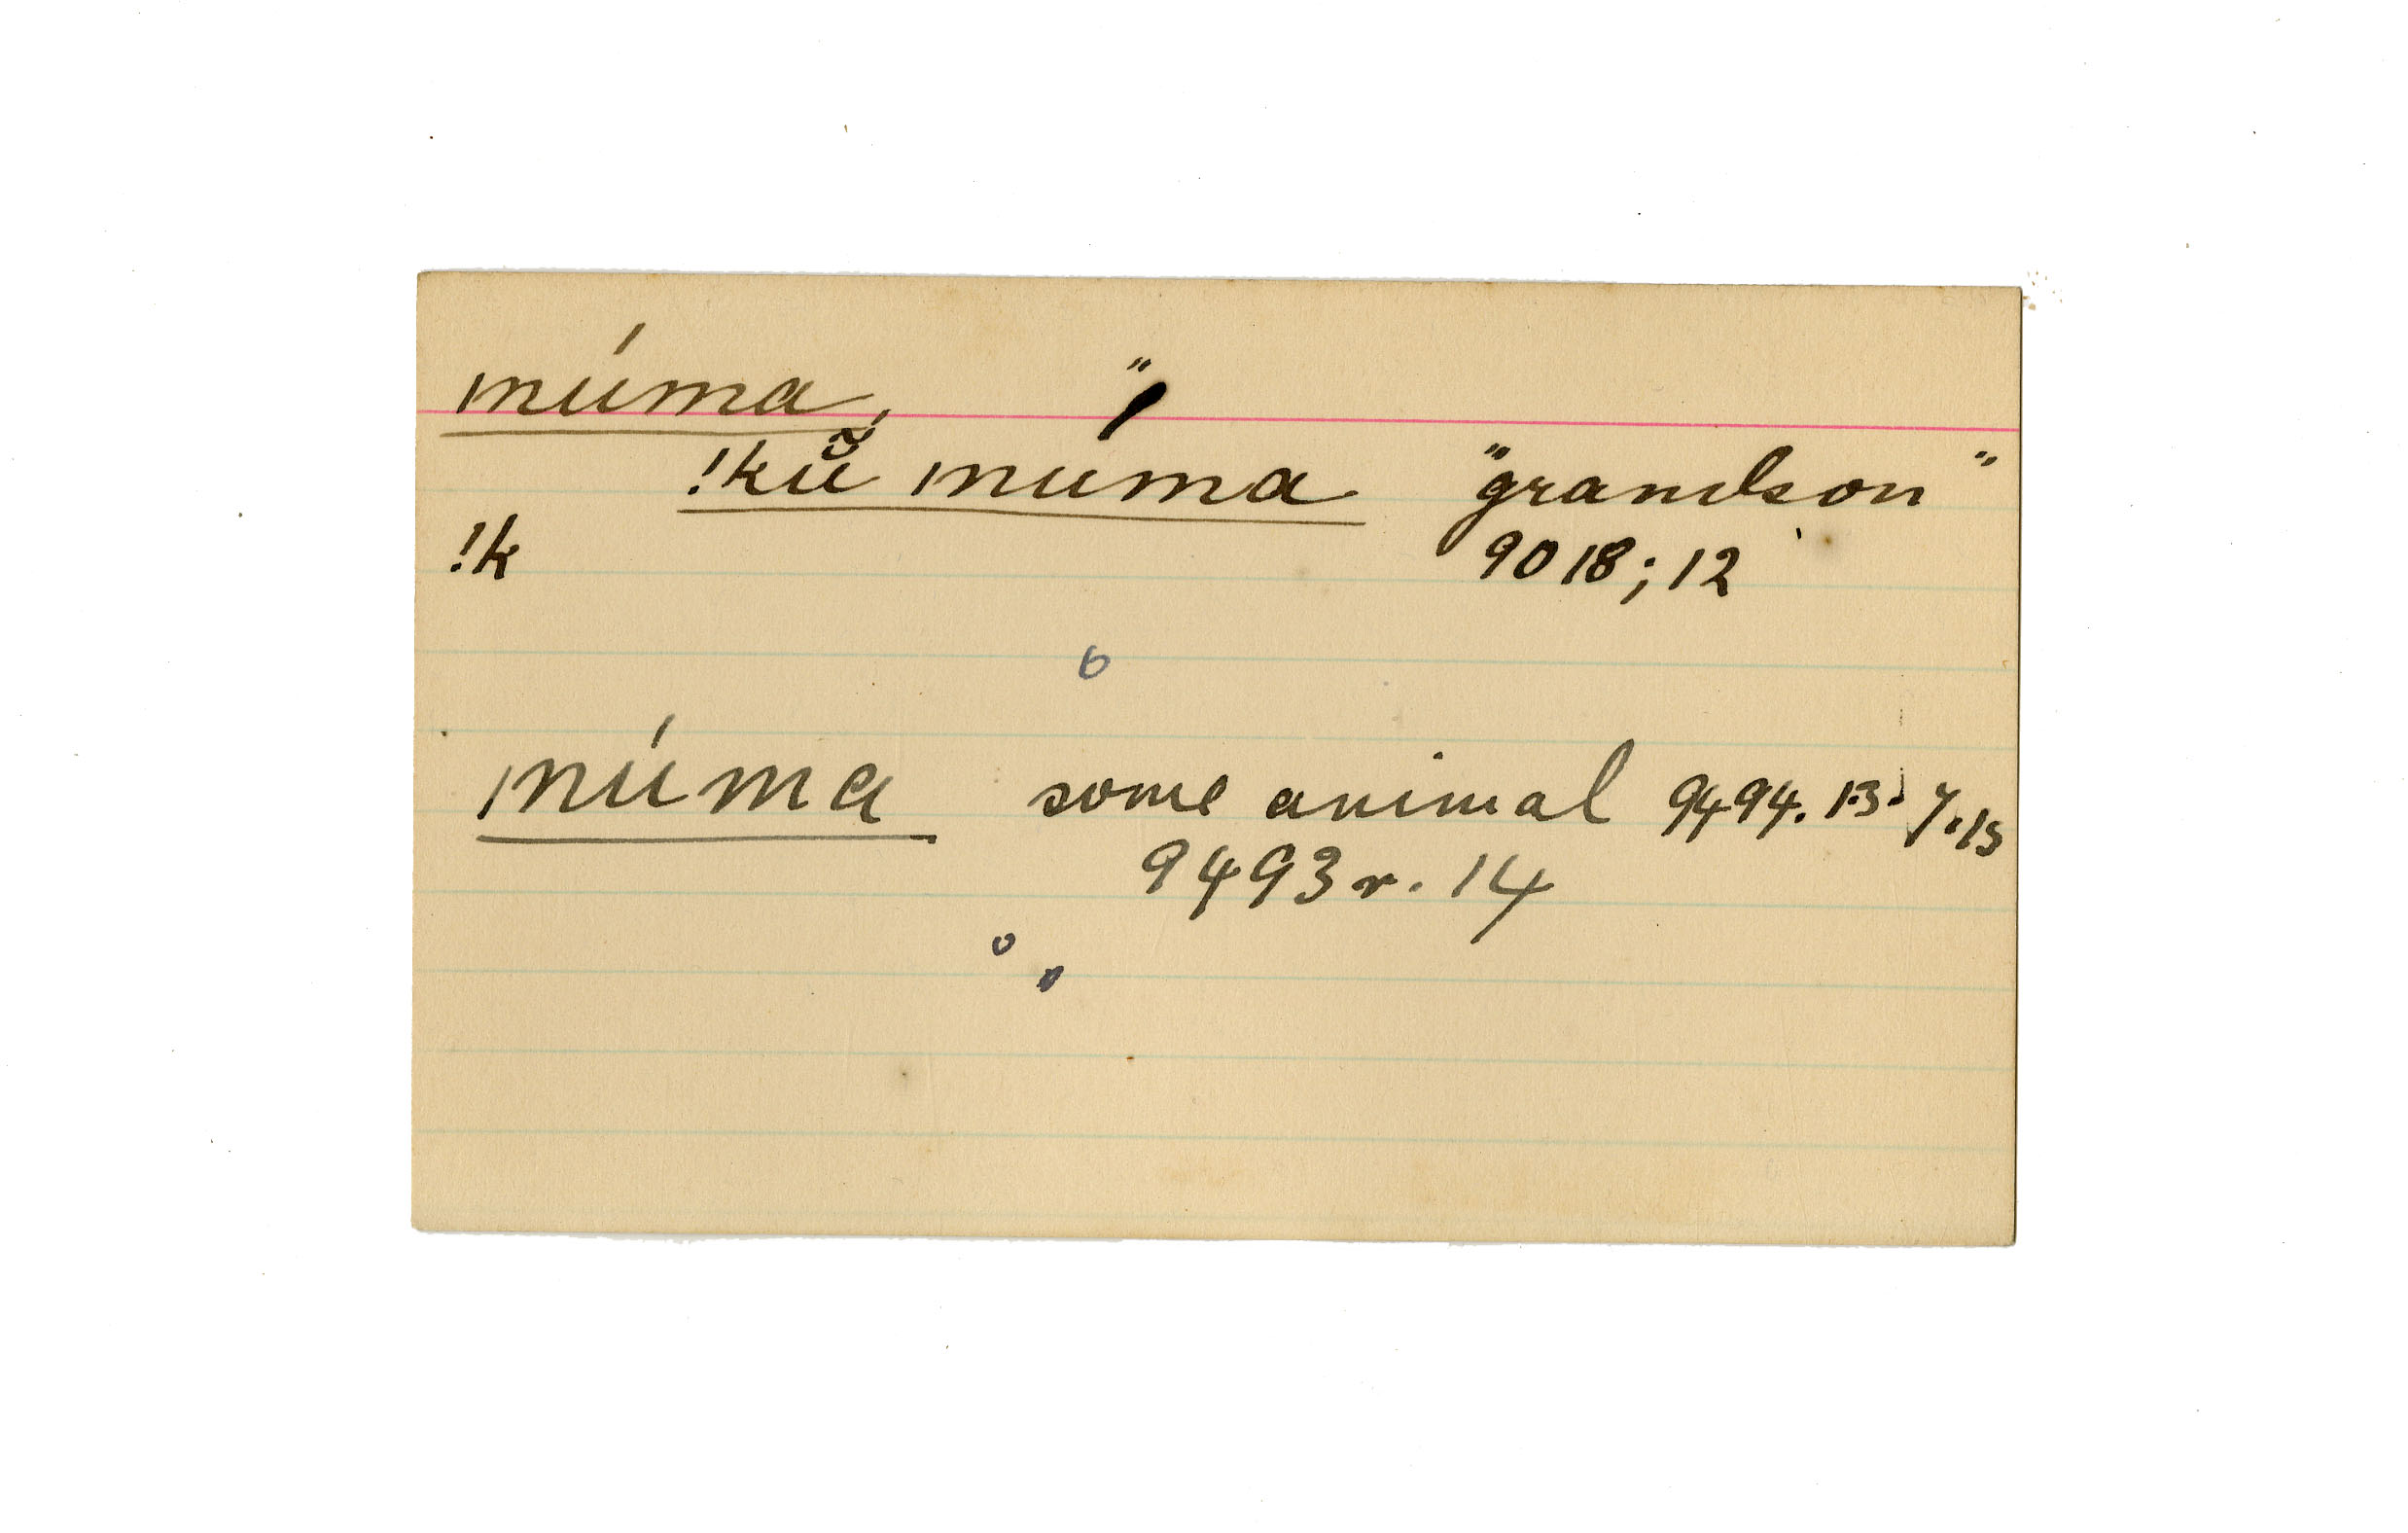 múma, "
!kŭ̃ múma "grandson"
!k 9018; 12
6
múma some animal 9494. 13. 7.15
9493 r. 14